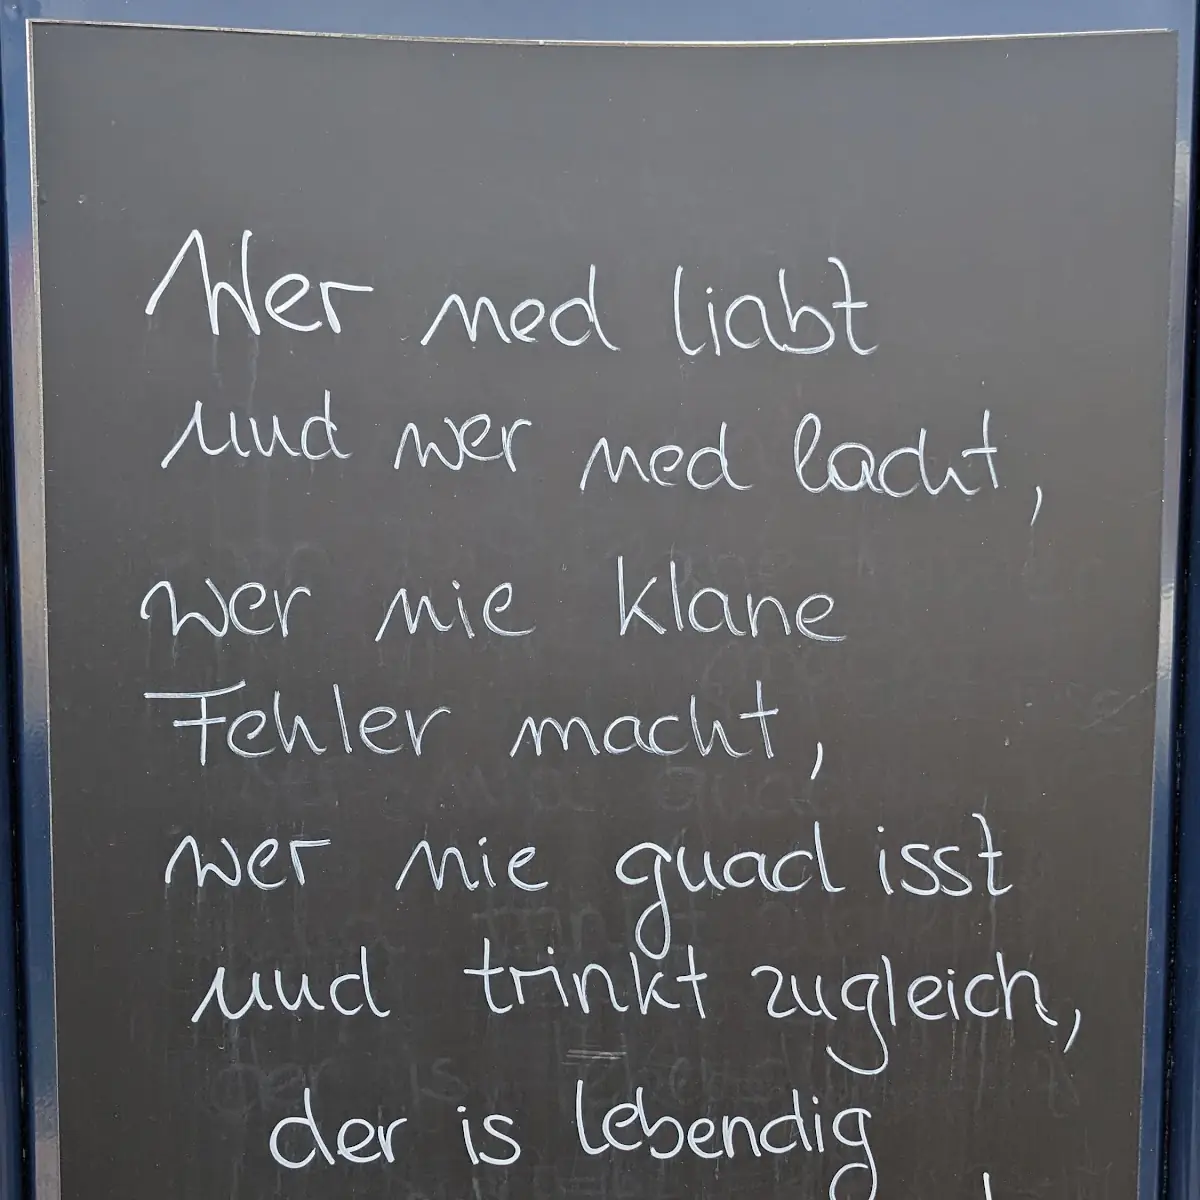 Wer ned liabt
und wer ned lacht,
wer nie klane
Fehler macht,
wer nie guad isst
und trinkt zugleich,
der is lebendig